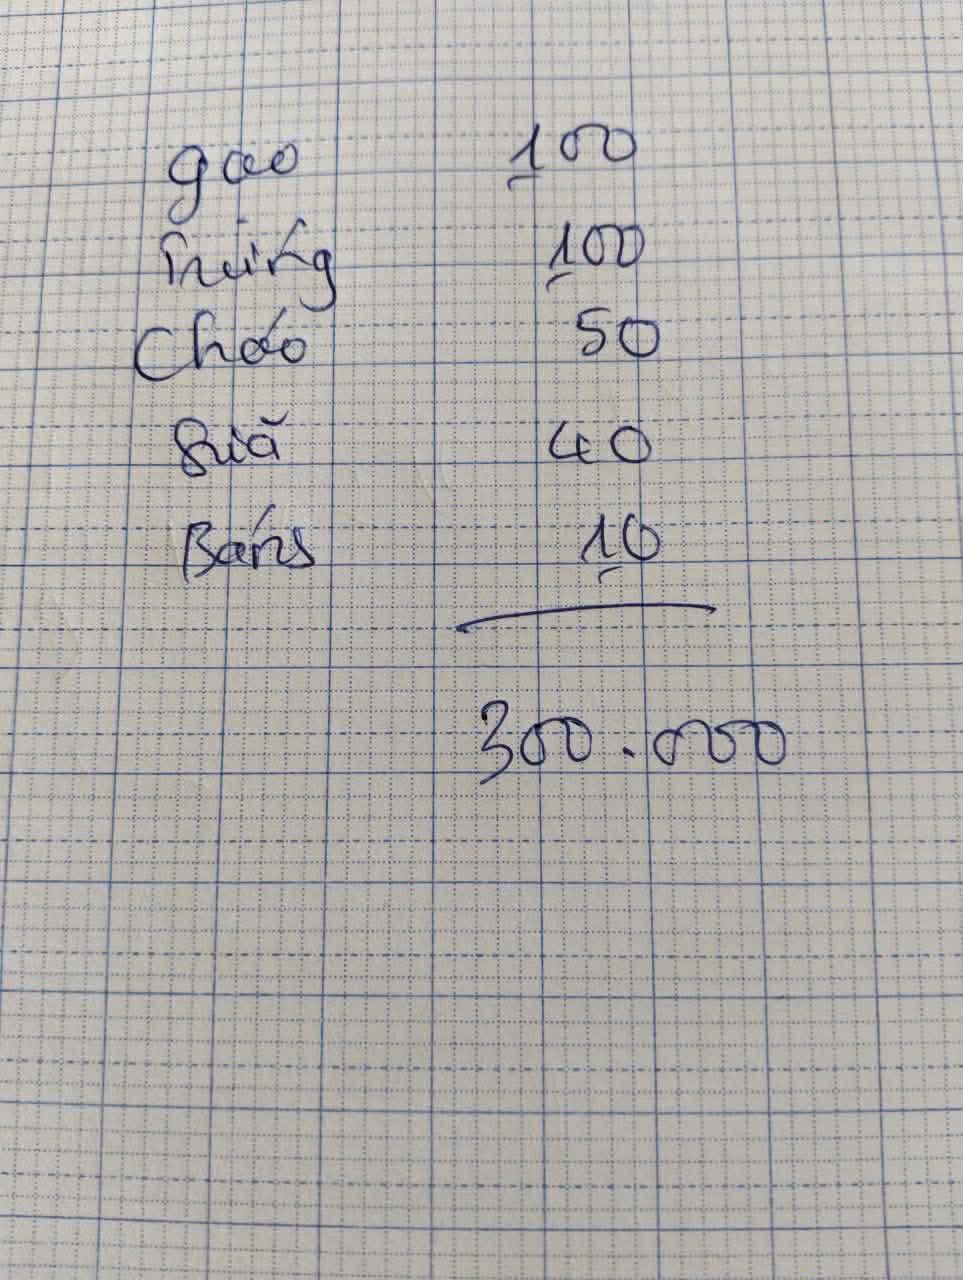 gạo 100
trứng 100
Cháo 50
Sữa 40
Bánh 10
300.000